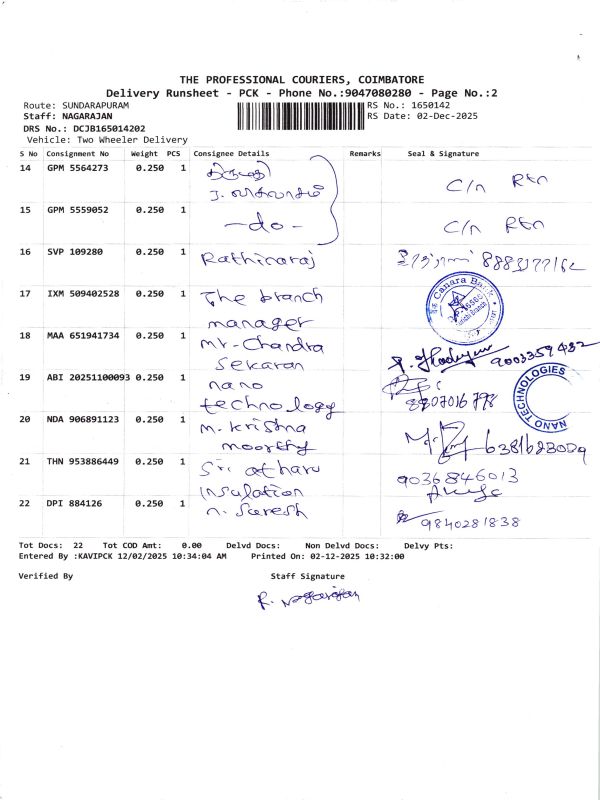 THE PROFESSIONAL COURIERS, COIMBATORE
Delivery Runsheet - PCK - Phone No.:9047080280 - Page No.:2
Route: SUNDARAPURAM
RS No.: 1650142
Staff: NAGARAJAN
RS Date: 02-Dec-2025
DRS No.: DCJB165014202
Vehicle: Two Wheeler Delivery
S No Consignment No Weight PCS Consignee Details Remarks Seal & Signature
14 GPM 5564273 0.250 1
C/n Rtn
15 GPM 5559052 0.250 1 -do- C/n Rtn
16 SVP 109280 0.250 1 Rathinaraj
17 IXM 509402528 0.250 1 The branch
manager
Canara Bank
18 MAA 651941734 0.250 1 Mr. Chandra
Sekaran
9003359482
19 ABI 20251100093 0.250 1 nano
technology
8807016798
NANO TECHNOLOGIES
20 NDA 906891123 0.250 1 M. Krishna
moorthy
21 THN 953886449 0.250 1 Sri atharv
Insulation
9036846013
22 DPI 884126 0.250 1 n. Suresh
9840281838
Tot Docs: 22 Tot COD Amt: 0.00 Delvd Docs: Non Delvd Docs: Delvy Pts:
Entered By :KAVIPCK 12/02/2025 10:34:04 AM Printed On: 02-12-2025 10:32:00
Verified By Staff Signature
R. Nagarajan